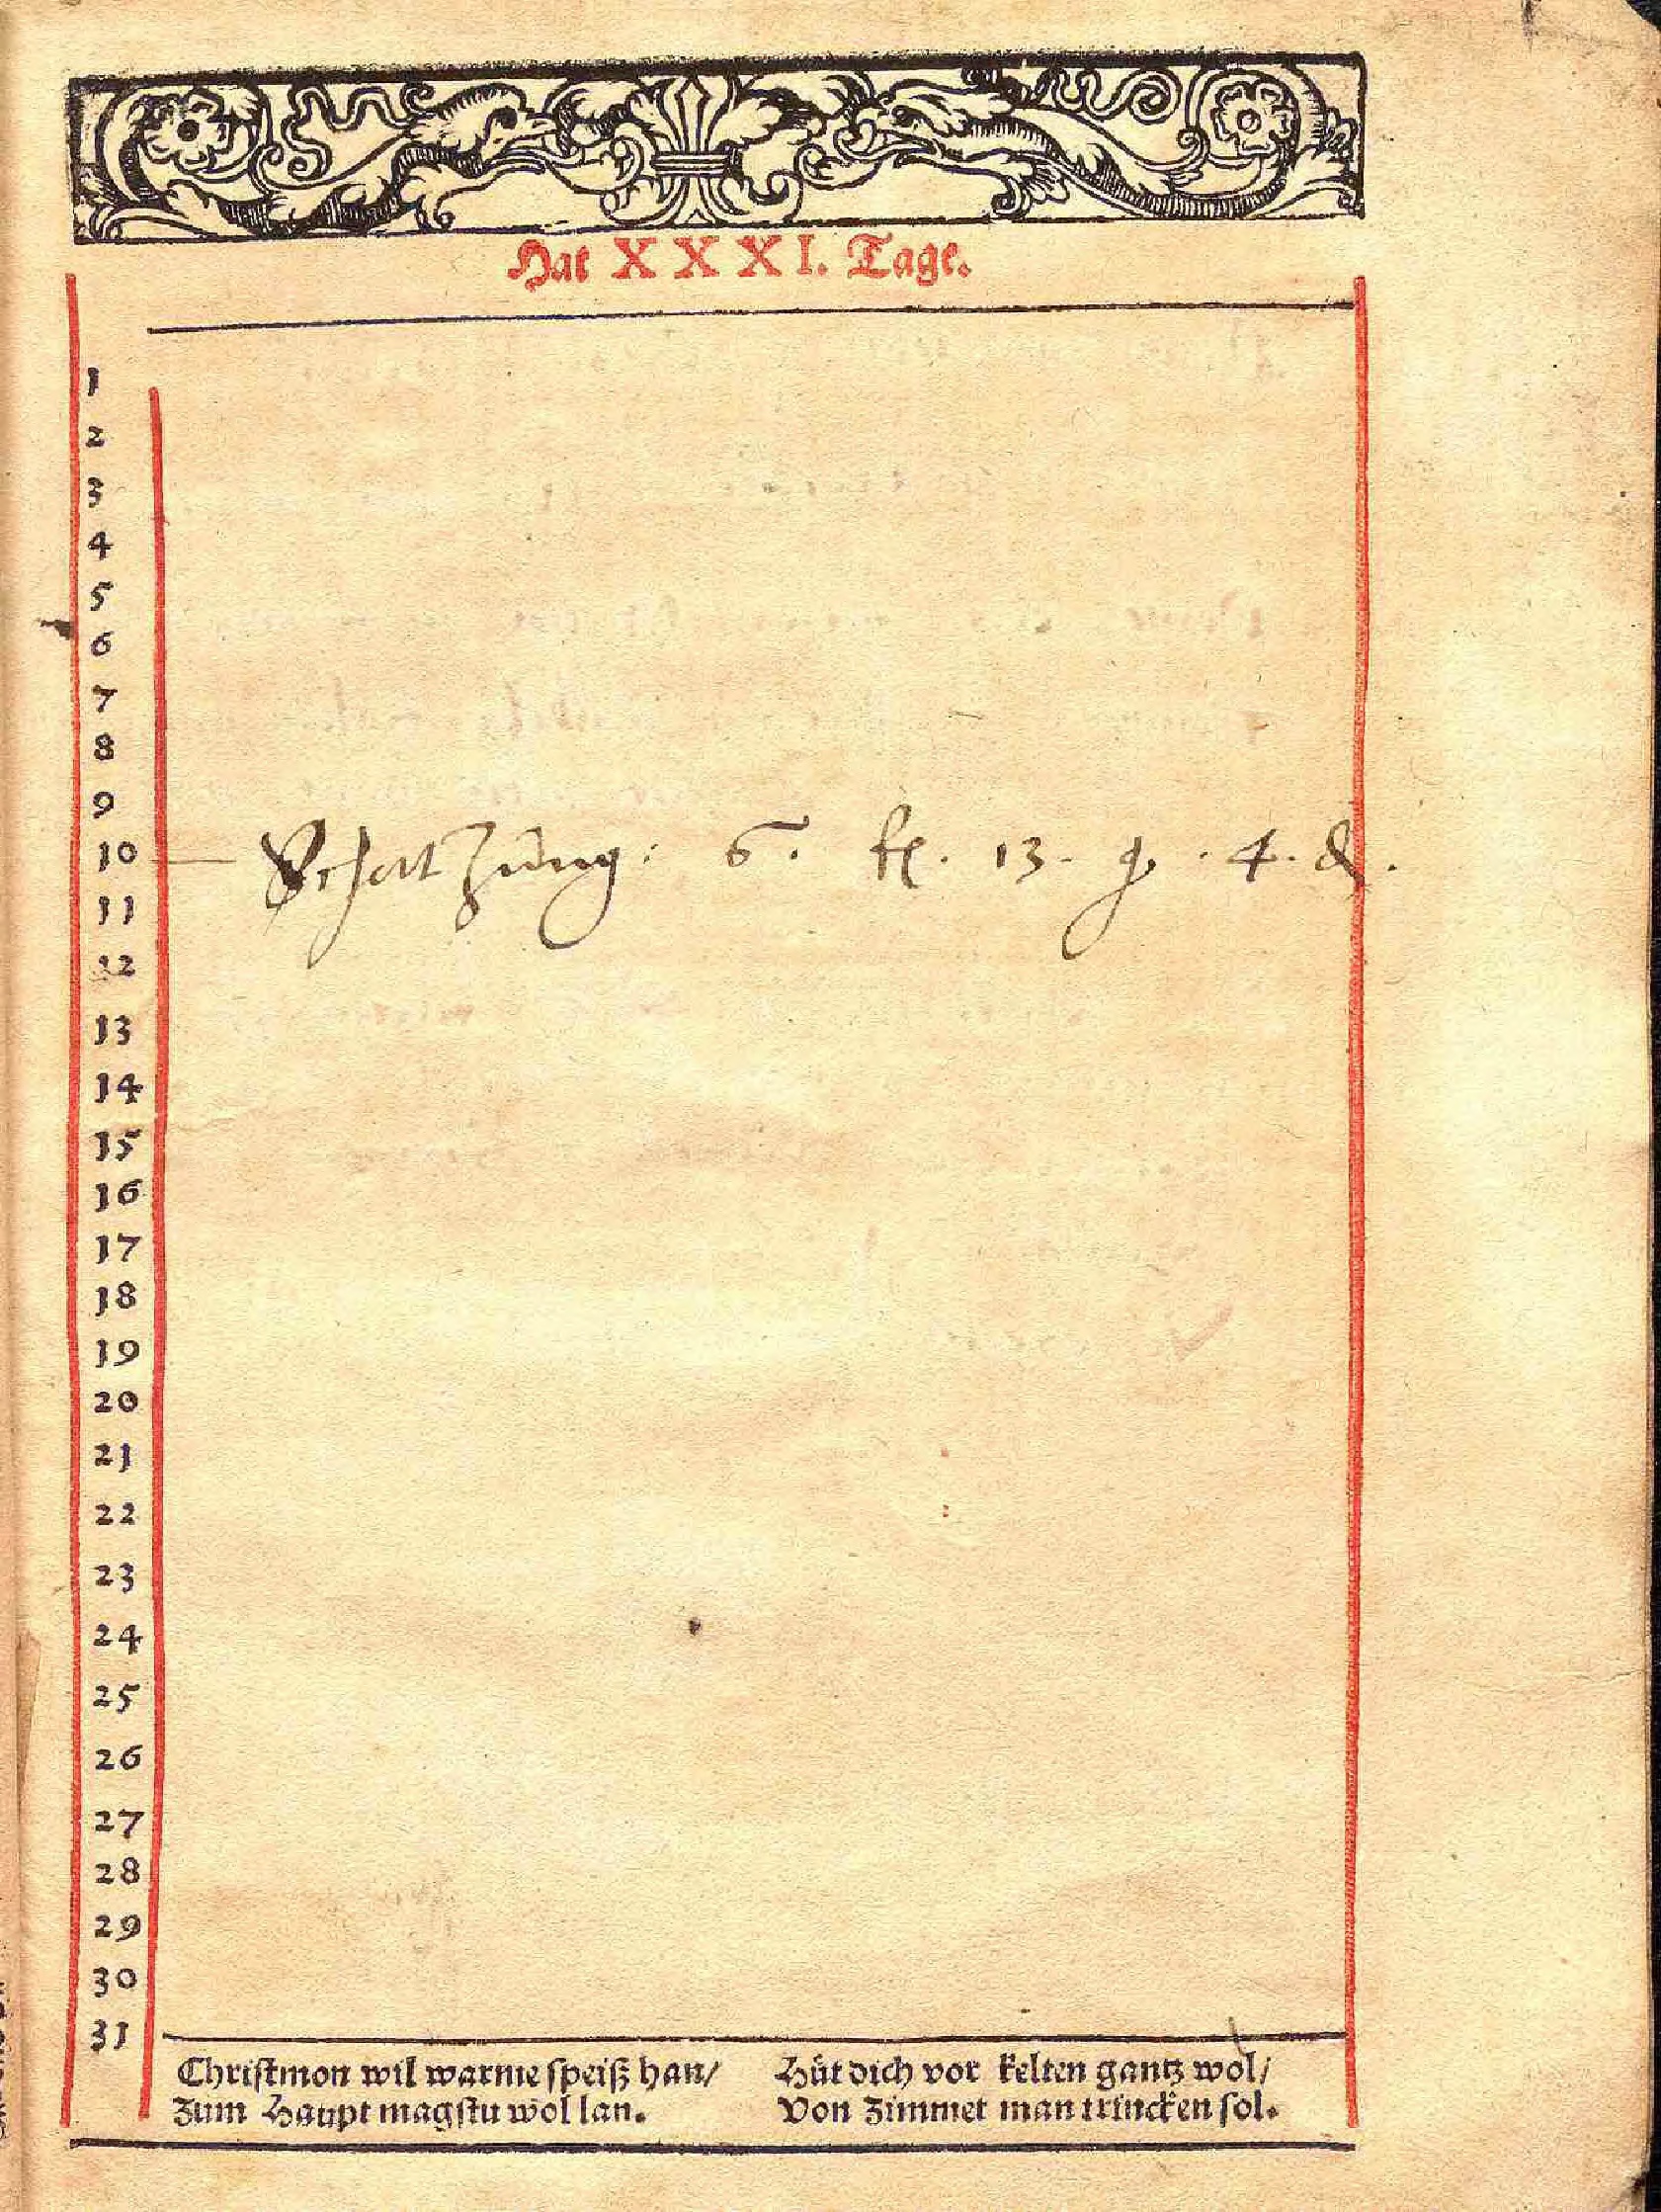 Hat XXXI. Tage.
1
2
3
4
5
6
7
8
9
10 Schatzung: 6. fl. 13. g. 4. d.
11
12
13
14
15
16
17
18
19
20
21
22
23
24
25
26
27
28
29
30
31
Christmon wil warme speiß han/
Zum Haupt magstu wol lan.
Hüt dich vor kelten gantz wol/
Von Zimmet man trincken sol.